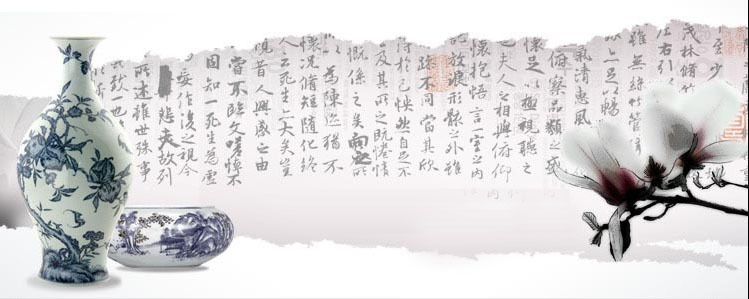 至少
茂林脩竹
左右引
雖無絲竹管弦
足以暢
氣清惠風
俯察品類之盛
懷足以極視聽之
也夫人之相與俯仰
懷抱悟言一室之內
放浪形骸之外雖
殊不同當其欣
得於己怏然自足不
及其所之既惓情
慨係之矣向之所
為陳迹猶不
懷況脩短隨化終
人云死生亦大矣豈
覽昔人興感之由
當不臨文嗟悼不
固知一死生為虛
妄作後之視今
悲夫故列
所述雖世殊事
致一也